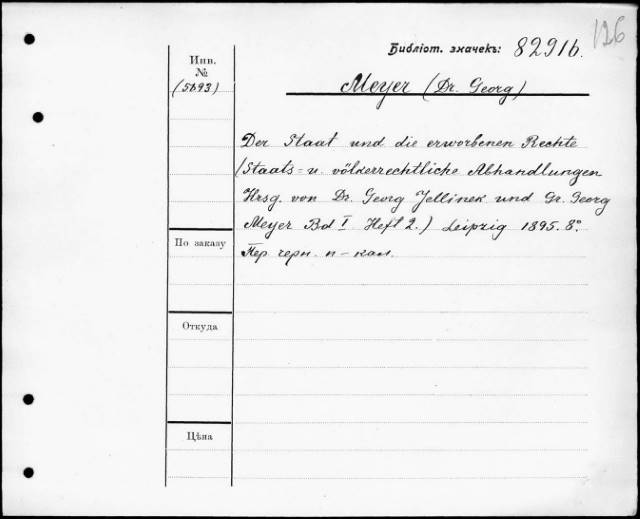 126
Библіот. значекъ: 8291b.
Инв.
№
(5693)
Meyer (Dr. Georg)
Der Staat und die erworbenen Rechte
(Staats= u. völkerrechtliche Abhandlungen
Hrsg. von Dr. Georg Jellinek und Dr. Georg
Meyer Bd I Heft 2.) Leipzig 1895. 8º.
По заказу
Пер черн. п-кал.
Откуда
Цѣна